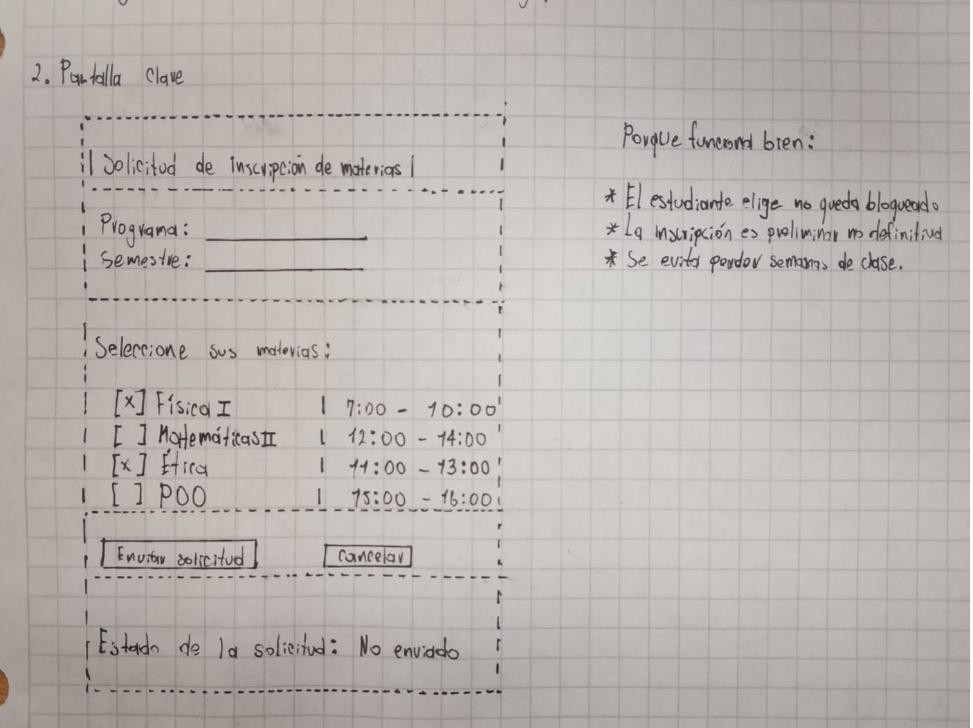 2. Pantalla clave
Solicitud de inscripción de materias
Programa:
Semestre:
Seleccione sus materias:
[x] Física I | 7:00 - 10:00
[ ] Matemáticas II | 12:00 - 14:00
[x] Ética | 11:00 - 13:00
[ ] POO | 15:00 - 16:00
Enviar solicitud Cancelar
Estado de la solicitud: No enviado
Porque funciona bien:
* El estudiante elige no queda bloqueado
* La inscripción es preliminar no definitiva
* Se evita perder semanas de clase.